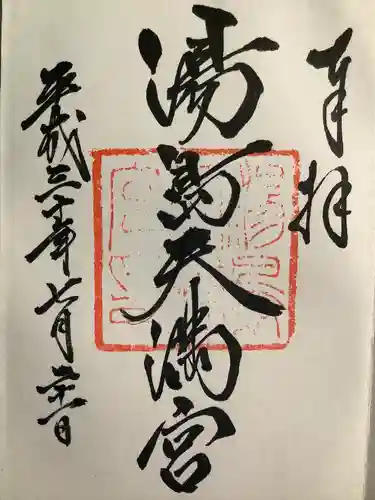 奉拝
湯島天満宮
平成三十年七月廿一日